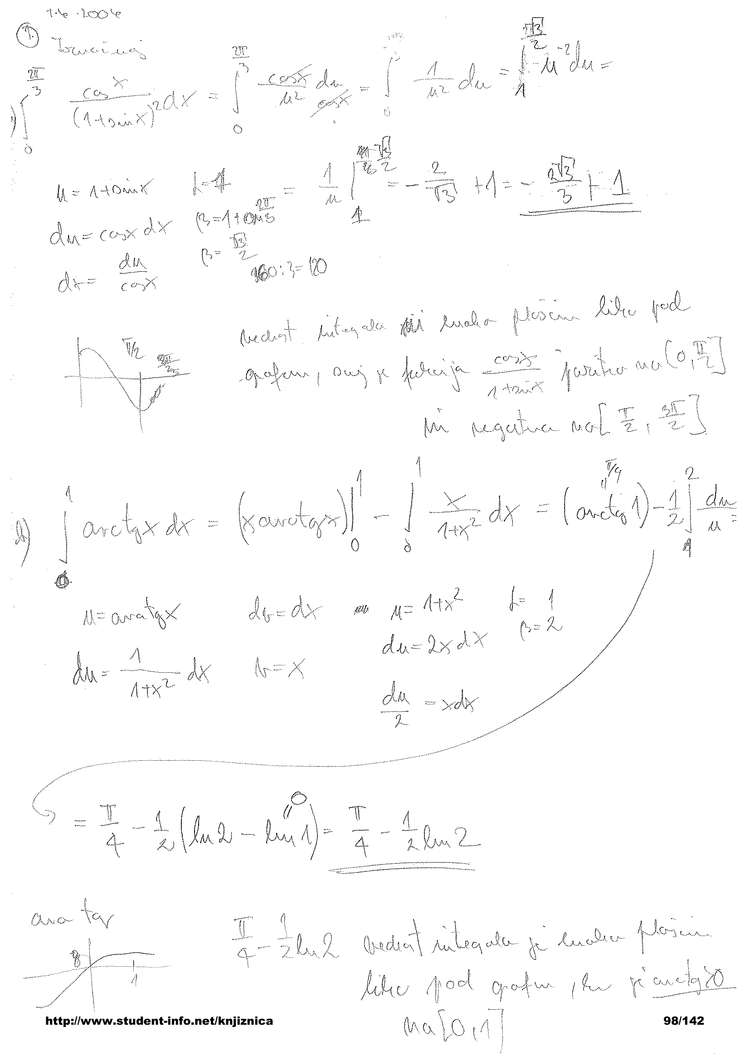 1.4.2004
1. Izračunaj
a) ∫_0^{2π/3} cosx/(1+sinx)^2 dx = ∫_0^{2π/3} cosx/u^2 du/cosx = ∫_0 1/u^2 du = ∫_1^{√3/2} u^{-2} du =
u = 1+sinx   α = 1   = 1/u |_1^{√3/2} = -2/√3 + 1 = -2√3/3 + 1
du = cosx dx   β = 1+sin 2π/3
dx = du/cosx   β = √3/2
360:3=120
π/2
vednost integrala ni enaka ploščini lika pod
grafom, saj je funkcija cosx/1+sinx pozitivna na [0, π/2]
in negativna na [π/2, 3π/2]
b) ∫_0^1 arctgx dx = (x arctgx)|_0^1 - ∫_0^1 x/(1+x^2) dx = (arctg1) - 1/2 ∫_1^2 du/u =
π/4
u = arctgx   dv = dx   u = 1+x^2   α = 1
du = 1/(1+x^2) dx   v = x   du = 2x dx   β = 2
du/2 = xdx
= π/4 - 1/2 (ln2 - ln1) = π/4 - 1/2 ln2
0
arctg
1
π/4 - 1/2 ln2 vrednost integrala je enaka ploščini
lika pod grafom, ker je arctg≥0
na [0,1]
http://www.student-info.net/knjiznica
98/142